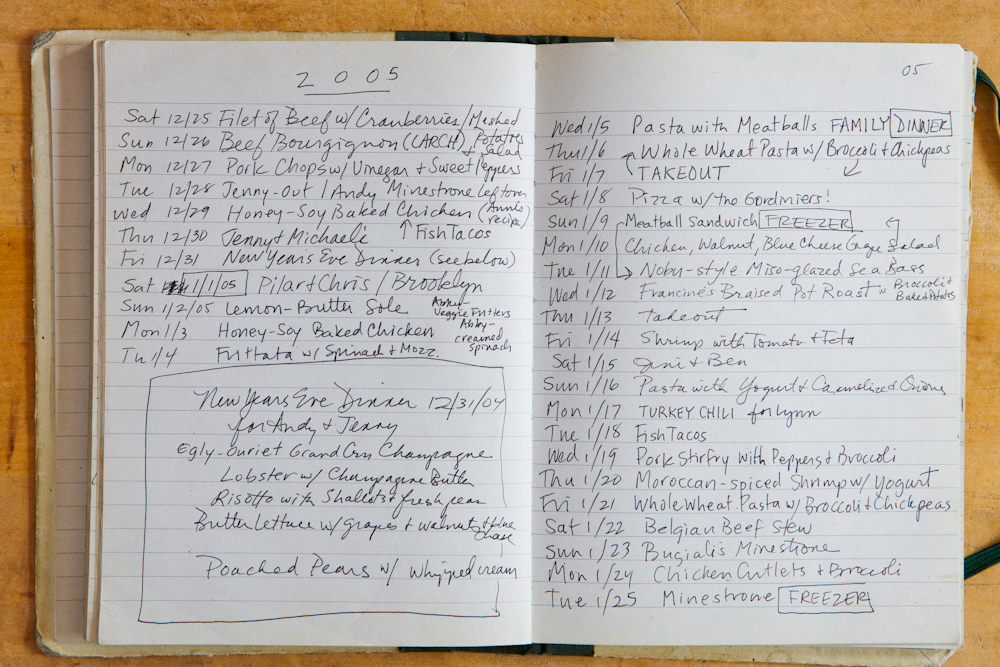 2005
Sat 12/25 Filet of Beef w/ Cranberries/Mashed Potatoes + Salad
Sun 12/26 Beef Bourgignon (LARCH)
Mon 12/27 Pork Chops w/ Vinegar + Sweet Peppers
Tue 12/28 Jenny-out / Andy Minestrone leftover
Wed 12/29 Honey-Soy Baked Chicken (Annie's recipe)
Thu 12/30 Jenny + Michael's ↑ Fish Tacos
Fri 12/31 New Years Eve Dinner (see below)
Sat 1/1/05 Pilar + Chris / Brooklyn
Sun 1/2/05 Lemon-Butter Sole Abby- Veggie Fritters
Mon 1/3 Honey-Soy Baked Chicken Abby- creamed spinach
Tu 1/4 Frittata w/ Spinach + Mozz.
New Years Eve Dinner 12/31/04
for Andy + Jenny
Egly-Ouriet Grand Cru Champagne
Lobster w/ Champagne Butter
Risotto with Shallots + fresh peas
Butter Lettuce w/ grapes + walnuts + blue cheese
Poached Pears w/ whipped cream
05
Wed 1/5 Pasta with Meatballs FAMILY DINNER
Thu 1/6 Whole Wheat Pasta w/ Broccoli + Chickpeas
Fri 1/7 TAKEOUT
Sat 1/8 Pizza w/ the Gordiniers!
Sun 1/9 Meatball Sandwich FREEZER
Mon 1/10 Chicken, Walnut, Blue Cheese Salad
Tue 1/11 Nobu-style Miso-glazed Sea Bass
Wed 1/12 Francine's Braised Pot Roast w Broccoli + Baked Potatoes
Thu 1/13 takeout
Fri 1/14 Shrimp with Tomato + Feta
Sat 1/15 Jeni + Ben
Sun 1/16 Pasta with Yogurt + Caramelized Onions
Mon 1/17 TURKEY CHILI for Lynn
Tue 1/18 Fish Tacos
Wed 1/19 Pork Stirfry with Peppers + Broccoli
Thu 1/20 Moroccan-spiced Shrimp w/ Yogurt
Fri 1/21 Whole Wheat Pasta w/ Broccoli + Chickpeas
Sat 1/22 Belgian Beef Stew
Sun 1/23 Bugiali's Minestrone
Mon 1/24 Chicken Cutlets + Broccoli
Tue 1/25 Minestrone FREEZER